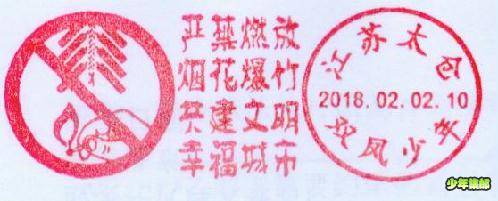 严禁燃放
烟花爆竹
共建文明
幸福城市
江苏太仓
2018.02.02.10
安风少年
少年集邮